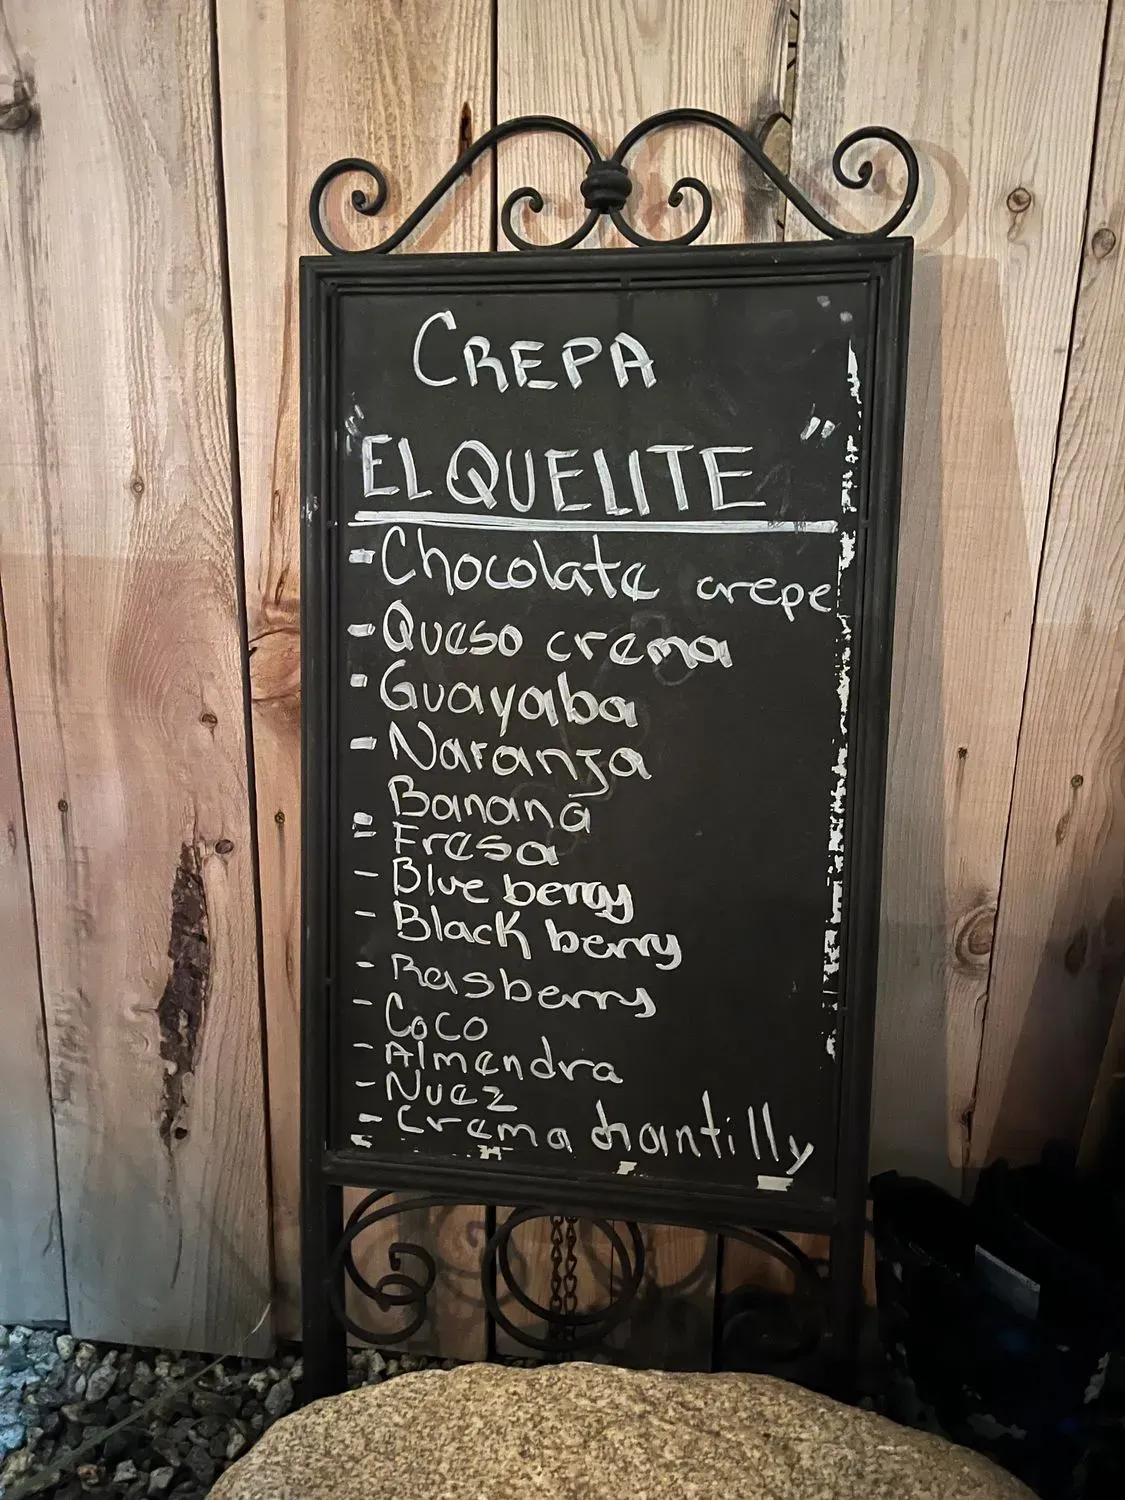 CREPA
"EL QUELITE"
- Chocolate crepe
- Queso crema
- Guayaba
- Naranja
- Banana
- Fresa
- Blue berry
- Black berry
- Rasberry
- Coco
- Almendra
- Nuez
- Crema chantilly